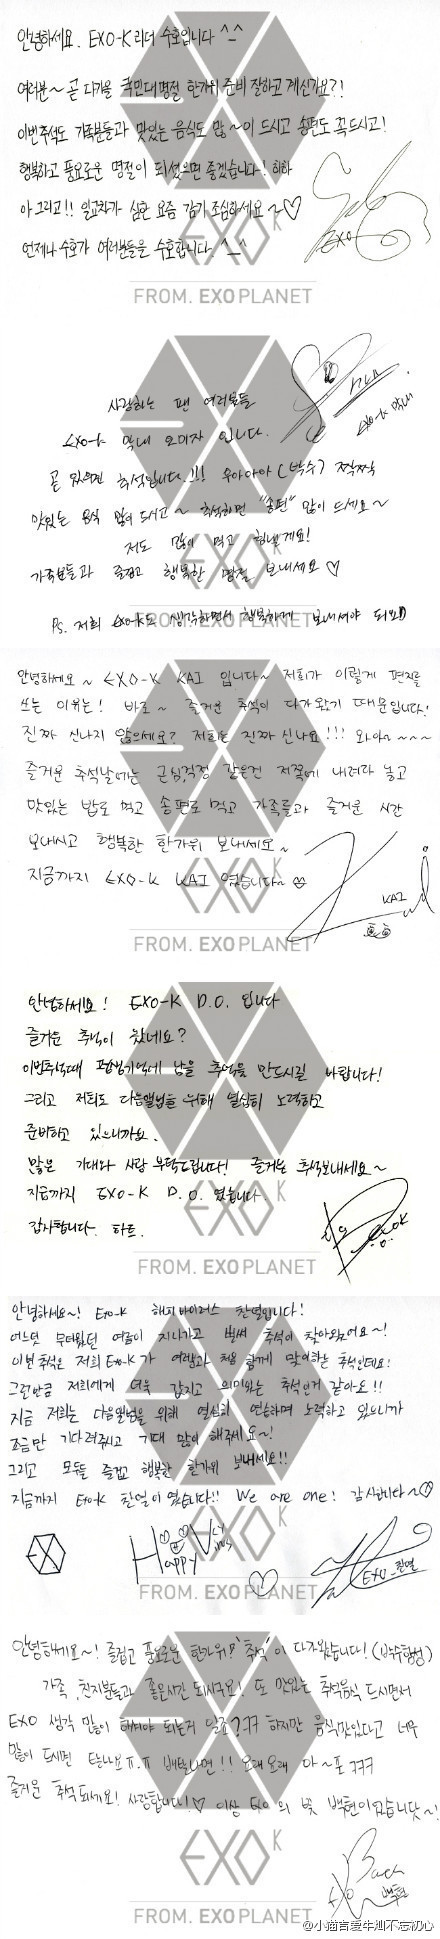 안녕하세요. EXO-K 리더 수호입니다 ^_^
여러분~ 곧 다가올 국민대명절 한가위 준비 잘하고 계신가요?!
이번 추석도 가족분들과 맛있는 음식도 많~이 드시고 송편도 꼭드시고!
행복하고 풍요로운 명절이 되셨으면 좋겠습니다! 히하
아 그리고!! 일교차가 심한 요즘 감기 조심하세요~♡
언제나 수호가 여러분들을 수호합니다. ^_^
EXO
EXO K
FROM. EXOPLANET
사랑하는 팬 여러분들
EXO-K 막내
EXO-K 막내 오미자 입니다.
곧 있으면 추석입니다.!!! 우아아아 (박수) 짝짝짝
맛있는 음식 많이 드시고~ 추석하면 "송편" 많이 드세요~
저도 많이 먹고 힘낼게요!
가족분들과 즐겁고 행복한 명절 보내세요♡
Ps. 저희 EXO-K도 생각하면서 행복하게 보내셔야 되요
안녕하세요~ EXO-K KAI 입니다~ 저희가 이렇게 편지를
쓰는 이유는! 바로~ 즐거운 추석이 다가왔기 때문입니다!
진짜 신나지 않으세요? 저희는 진짜 신나요!!! 와아~~~~
즐거운 추석날에는 근심,걱정 같은건 저쪽에 내려다 놓고
맛있는 밥도 먹고 송편도 먹고 가족들과 즐거운 시간
보내시고 행복한 한가위 보내세요~
지금까지 EXO-K KAI 였습니다~
KAI
EXO K
FROM. EXOPLANET
안녕하세요! EXO-K D.O. 입니다
즐거운 추석이 왔네요?
이번추석때 평생기억에 남을 추억을 만드시길 바랍니다!
그리고 저희도 다음앨범을 위해 열심히 노력하고
준비하고 있으니까요.
많은 기대와 사랑 부탁드립니다! 즐거운 추석보내세요~
지금까지 EXO-K D.O. 였습니다
감사합니다. 하트.
EXO K
FROM. EXOPLANET
안녕하세요~! EXO-K 해피바이러스 찬열입니다!
어느덧 무더웠던 여름이 지나가고 벌써 추석이 찾아왔어요~!
이번 추석은 저희 EXO-K가 여러분과 처음 함께 맞이하는 추석인데요!
그런만큼 저희에게 더욱 값지고 의미있는 추석인거 같아요!!
지금 저희는 다음앨범을 위해 열심히 연습하며 노력하고 있으니까
조금만 기다려주시고 기대 많이 해주세요~!
그리고 모두들 즐겁고 행복한 한가위 보내세요!!
지금까지 EXO-K 찬열이였습니다!! We are one! 감사합니다~♡
Happy Virus
EXO-찬열
EXO K
FROM. EXOPLANET
안녕하세요~! 즐겁고 풍요로운 한가위! '추석'이 다가왔습니다! (박수함성)
가족, 친지분들과 좋은시간 되시구요! 또 맛있는 추석음식 드시면서
EXO 생각 많이 해줘야 되는거 알죠? ㅋㅋ 하지만 음식맛있다고 너무
많이 드시면 탈나요 ㅠ.ㅠ 배탈나면!! 오래오래 아~포 ㅋㅋㅋ
즐거운 추석 되세요! 사랑합니다!♡ 이상 EXO의 빛 백현이었습니닷~!
EXO K
Baek
백현
@小猫言爱牛灿不忘初心